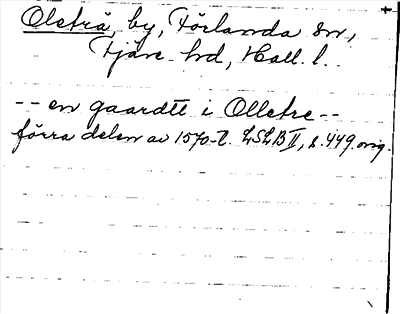 Olsträ, by, Förlanda sn,
Fjäre hd, Hall. l.
-- en gaardtt i Olletre --
förra delen av 1570-t. LSLB II, s. 449 orig.